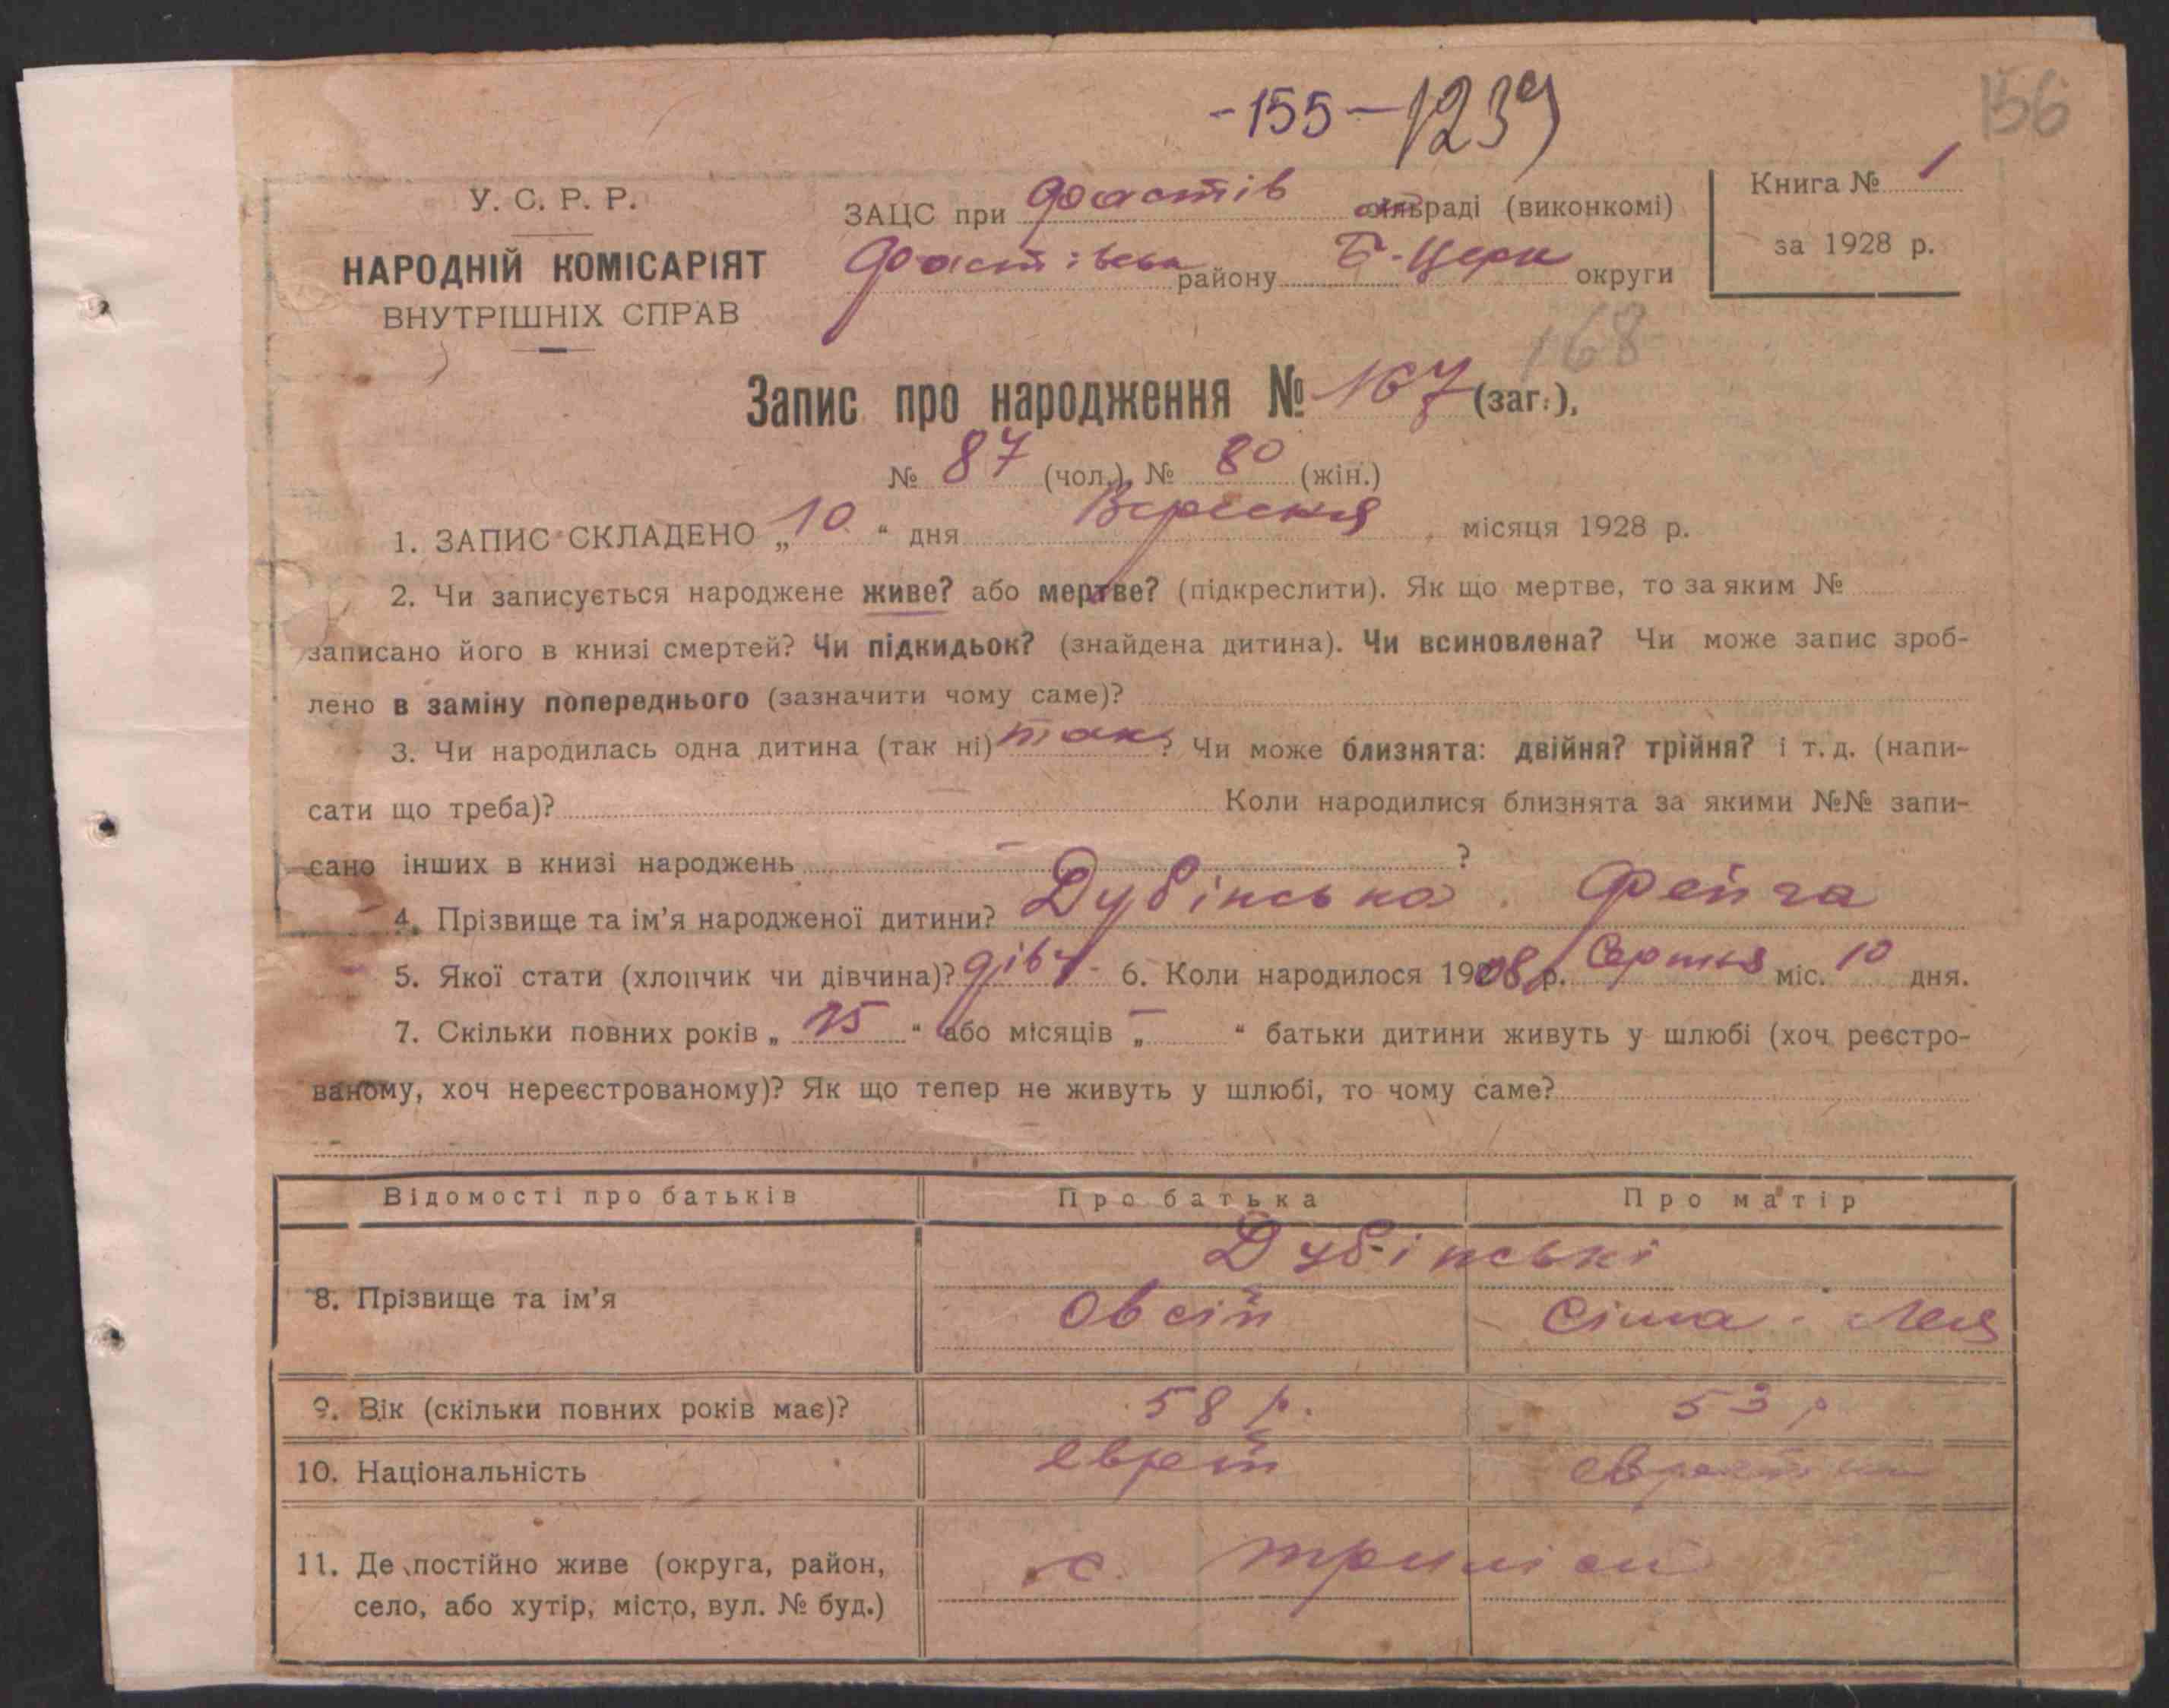 -155-
1239
156
У. С. Р. Р.
НАРОДНІЙ КОМІСАРІЯТ
ВНУТРІШНІХ СПРАВ
ЗАЦС при Фастів раді (виконкомі)
Фастівськ району Б-Церк округи
Книга № 1
за 1928 р.
168
Запис про народження № 167 (заг.),
№ 87 (чол.), № 80 (жін.)
1. ЗАПИС СКЛАДЕНО „ 10 “ дня Вересня місяця 1928 р.
2. Чи записується народжене живе? або мертве? (підкреслити). Як що мертве, то за яким №
записано його в книзі смертей? Чи підкидьок? (знайдена дитина). Чи всиновлена? Чи може запис зроб-
лено в заміну попереднього (зазначити чому саме)?
3. Чи народилась одна дитина (так ні) так ? Чи може близнята: двійня? трійня? і т. д. (напи-
сати що треба)? Коли народилися близнята за якими №№ запи-
сано інших в книзі народжень — ?
4. Прізвище та ім’я народженої дитини? Дубінська Фейга
5. Якої стати (хлопчик чи дівчина)? дівч- 6. Коли народилося 1908 р. Серпня міс. 10 дня.
7. Скільки повних років „ “ або місяців „ — “ батьки дитини живуть у шлюбі (хоч реєстро-
ваному, хоч нереєстрованому)? Як що тепер не живуть у шлюбі, то чому саме?
Відомості про батьків Про батька Про матір
Дубінські
8. Прізвище та ім’я Овсій Сіма - Лея
9. Вік (скільки повних років має)? 58 р. 53 р
10. Національність еврей
11. Де постійно живе (округа, район, с. Триліси
село, або хутір, місто, вул. № буд.)